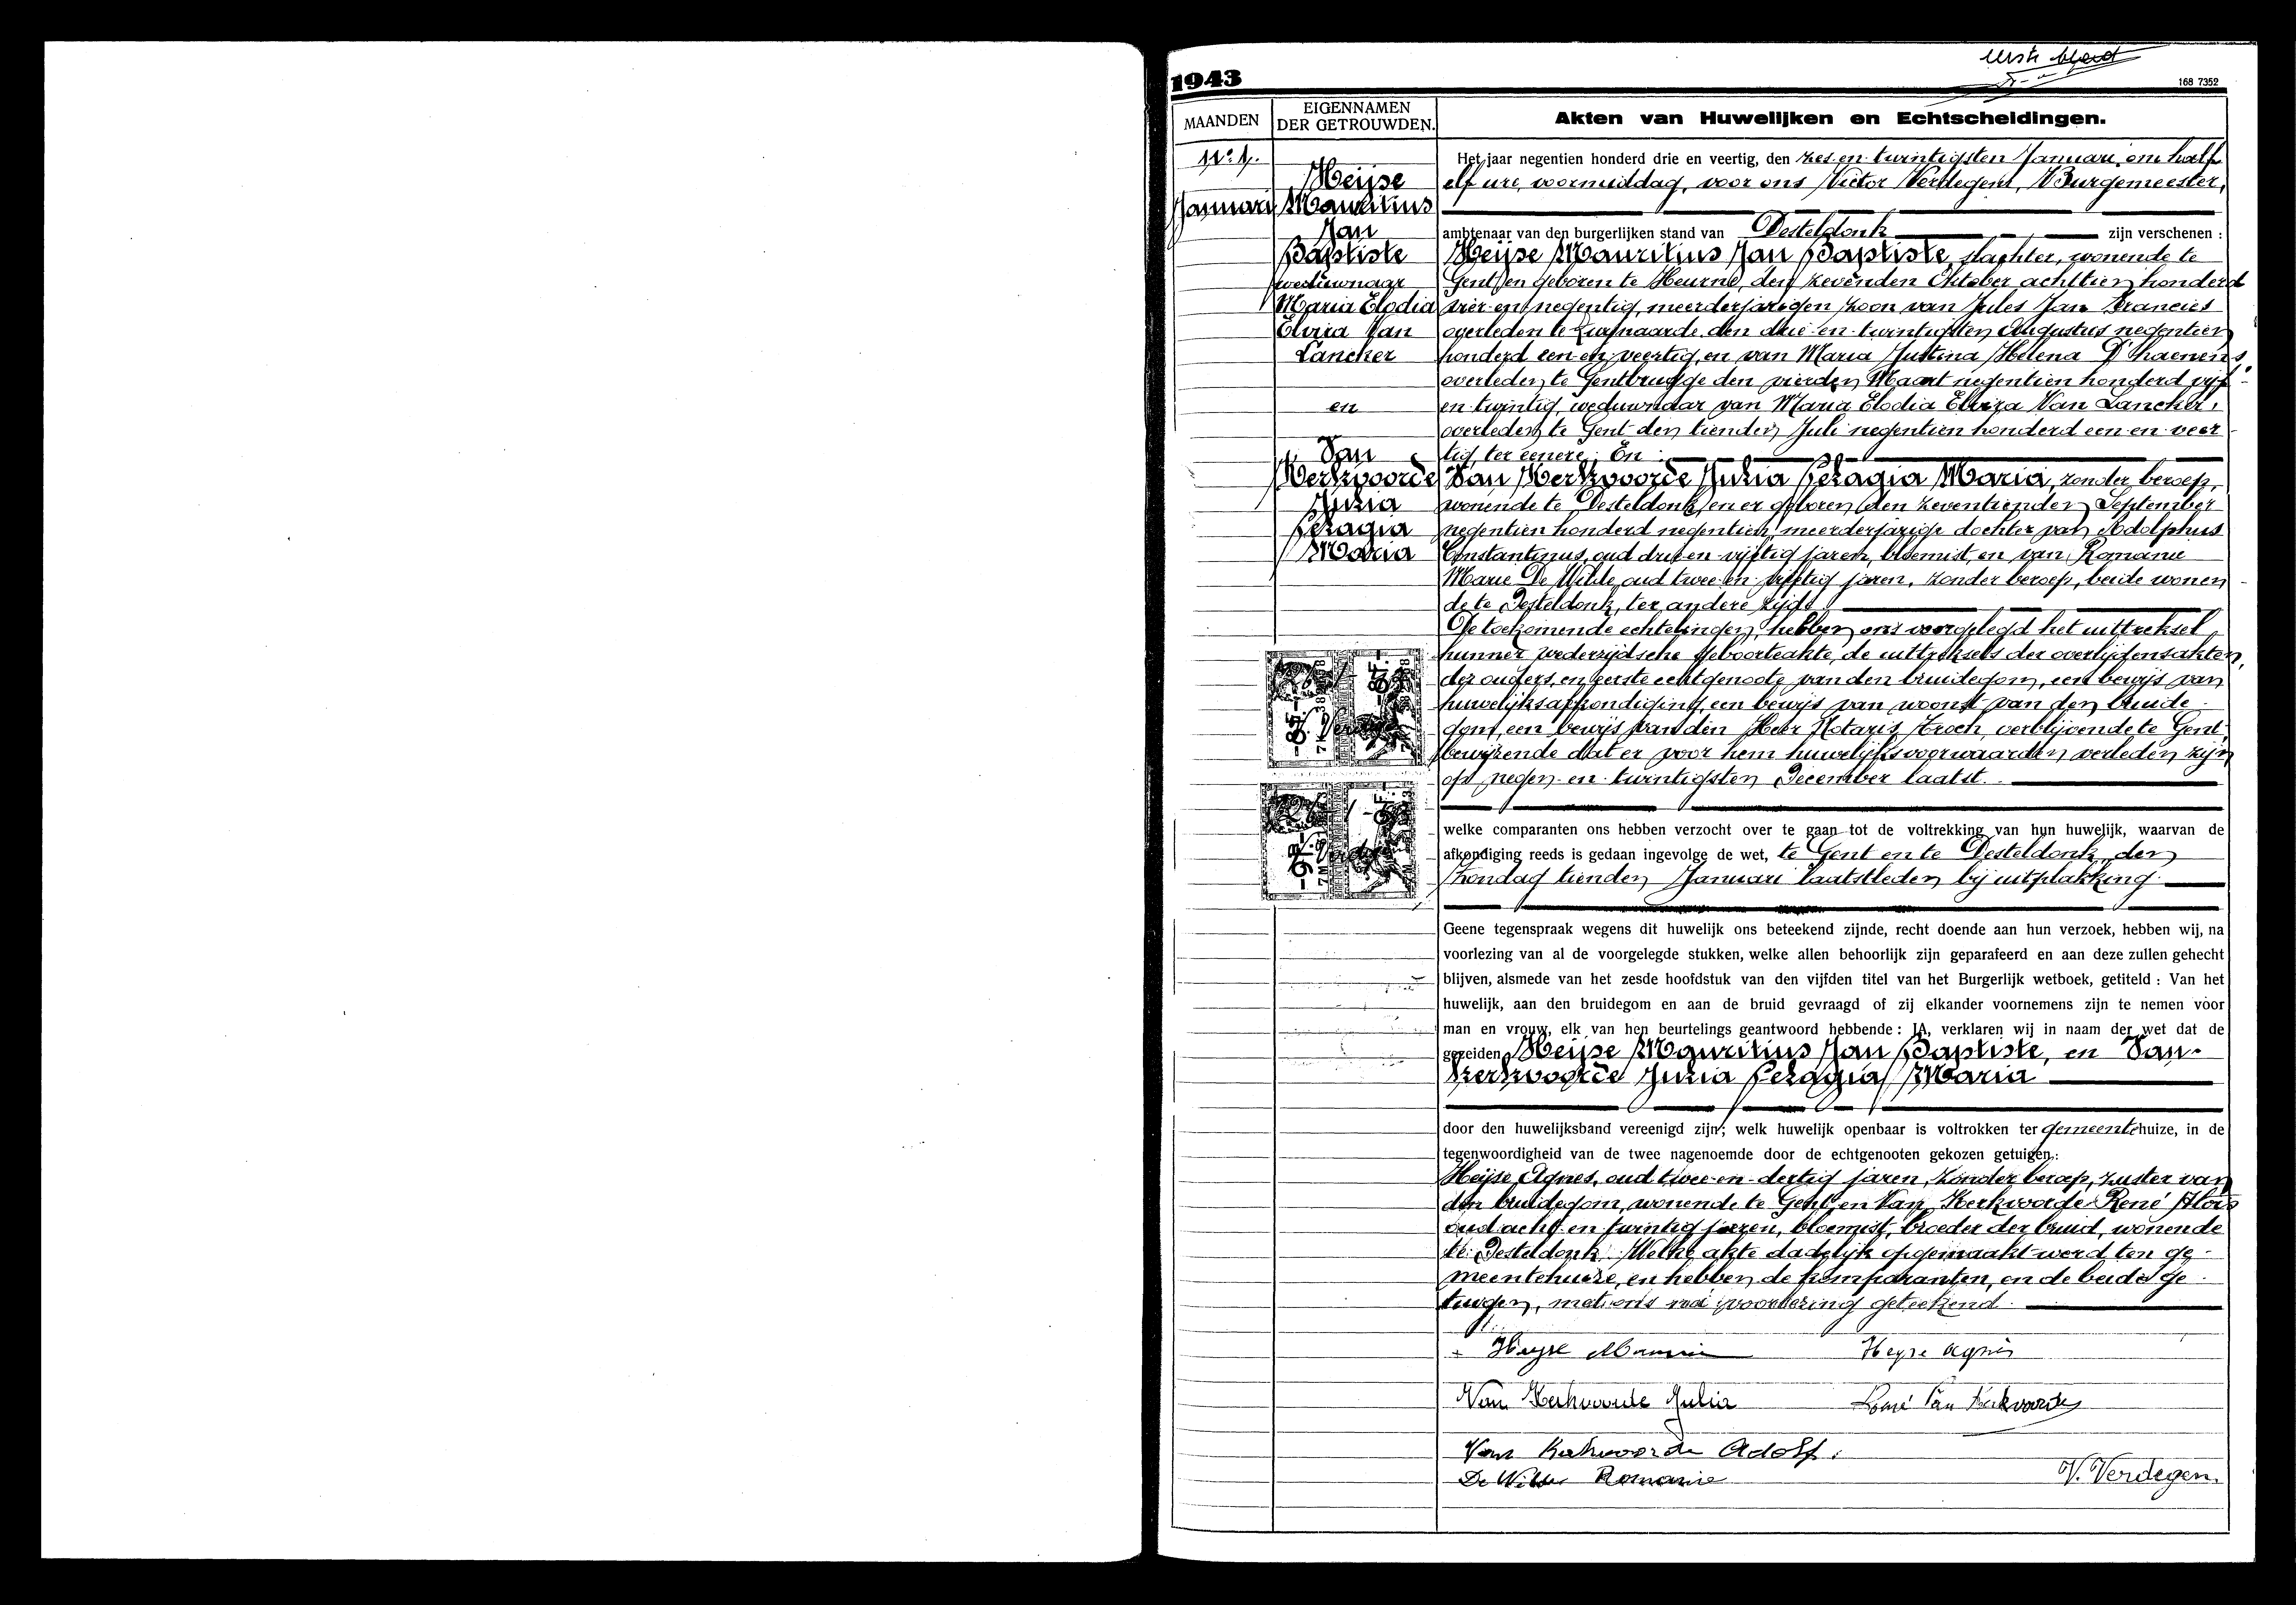 eerste blad
1943
168 7352
MAANDEN
EIGENNAMEN
DER GETROUWDEN.
Akten van Huwelijken en Echtscheidingen.
N° 1.
Januari
Heijse
Mauritius
Jan
Baptiste
weduwnaar
Maria Elodia
Elvira Van
Lancker
en
Van
Kerkvoorde
Julia
Pelagia
Maria
Het jaar negentien honderd drie en veertig, den zes-en-twintigsten Januari, om half
elf ure, voormiddag, voor ons Victor Verdegem, Burgemeester,
ambtenaar van den burgerlijken stand van Desteldonk zijn verschenen :
Heijse Mauritius Jan Baptiste, slachter, wonende te
Gent, en geboren te Heurne, den zevenden Oktober achttien honderd
vier-en-negentig, meerderjarigen zoon van Jules Jan Francies
overleden te Zwijnaarde den drie-en-twintigsten Augustus negentien
honderd een-en-veertig, en van Maria Justina Helena D'haenens,
overleden te Gentbrugge den vierden Maart negentien honderd vijf-
en-twintig, weduwnaar van Maria Elodia Elvira Van Lancker,
overleden te Gent den tienden Juli negentien honderd een-en-veer-
tig, ter eenere. En :
Van Kerkvoorde Julia Pelagia Maria, zonder beroep,
wonende te Desteldonk, en er geboren den zeventienden September
negentien honderd negentien, meerderjarige dochter van Adolphus
Constantinus, oud drie-en-vijftig jaren, bloemist, en van Romanie
Marie De Wilde, oud twee-en-vijftig jaren, zonder beroep, beide wonen-
de te Desteldonk, ter andere zijde
De toekomende echtelingen, hebben ons voorgelegd het uittreksel
hunner wederzijdsche geboorteakte, de uittreksels der overlijdensakten,
der ouders, en eerste echtgenoote van den bruidegom, een bewijs van
huwelijksafkondiging, een bewijs van woonst van den bruide-
gom, een bewijs van den Heer Notaris, verblijvende te Gent,
bewijzende dat er voor hem huwelijksvoorwaarden verleden zijn
op negen-en-twintigsten December laatst.
welke comparanten ons hebben verzocht over te gaan tot de voltrekking van hun huwelijk, waarvan de
afkondiging reeds is gedaan ingevolge de wet, te Gent en te Desteldonk, den
Zondag tienden Januari laatstleden bij uitplakking.
Geene tegenspraak wegens dit huwelijk ons beteekend zijnde, recht doende aan hun verzoek, hebben wij, na
voorlezing van al de voorgelegde stukken, welke allen behoorlijk zijn geparafeerd en aan deze zullen gehecht
blijven, alsmede van het zesde hoofdstuk van den vijfden titel van het Burgerlijk wetboek, getiteld : Van het
huwelijk, aan den bruidegom en aan de bruid gevraagd of zij elkander voornemens zijn te nemen voor
man en vrouw, elk van hen beurtelings geantwoord hebbende : JA, verklaren wij in naam der wet dat de
gezeiden Heijse Mauritius Jan Baptiste, en Van-
Kerkvoorde Julia Pelagia Maria
door den huwelijksband vereenigd zijn; welk huwelijk openbaar is voltrokken ter gemeentehuize, in de
tegenwoordigheid van de twee nagenoemde door de echtgenooten gekozen getuigen :
Heijse Agnes, oud twee-en-dertig jaren, zonder beroep, zuster van
den bruidegom, wonende te Gent, en Van Kerkvoorde René Alois
oud acht-en-twintig jaren, bloemist, broeder der bruid, wonende
te Desteldonk. Welke akte dadelijk opgemaakt werd ten ge-
meentehuize, en hebben de komparanten, en de beide ge-
tuigen, met ons na voorlezing geteekend.
Heyse Maurice
Heyse Agnès
Van Kerkvoorde Julia
René Van Kerkvoorde
Van Kerkvoorde Adolf.
De Wilde Romanie
V. Verdegem